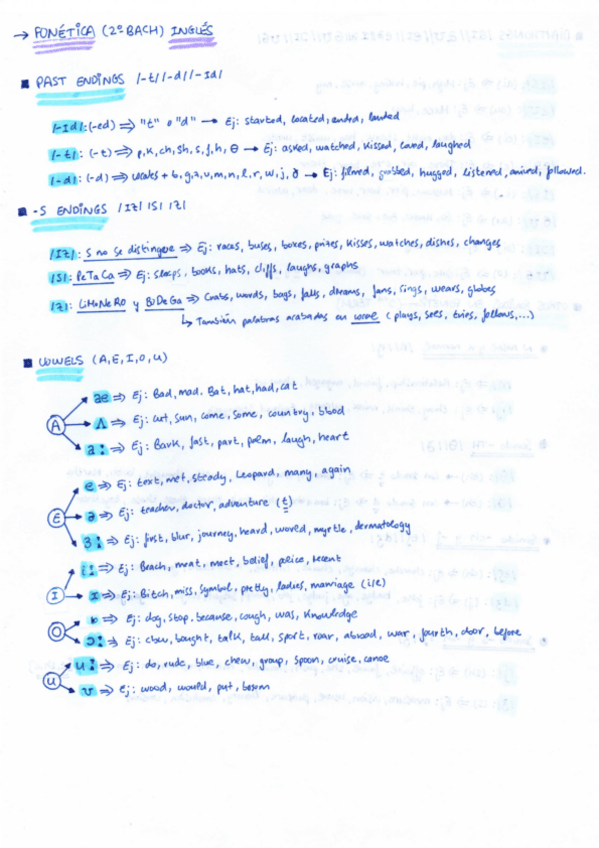 → FONÉTICA (2º BACH) INGLÉS
■ PAST ENDINGS /-t/ /-d/ /-Id/
/-Id/: (-ed) ⇒ "t" o "d" → Ej: started, located, ended, landed
/-t/: (-t) ⇒ p, k, ch, sh, s, f, h, θ → Ej: asked, watched, kissed, caved, laughed
/-d/: (-d) ⇒ vocales + b, g, z, v, m, n, l, r, w, j, ð → Ej: filmed, grabbed, hugged, listened, arrived, followed.
■ -S ENDINGS /IZ/ /S/ /Z/
/IZ/: S no se distingue ⇒ Ej: races, buses, boxes, prizes, kisses, watches, dishes, changes
/S/: PeTaCa ⇒ Ej: sleeps, books, hats, cliffs, laughs, graphs
/Z/: LiMoNeRO y BiDeGa ⇒ Crabs, words, bags, falls, dreams, fans, sings, wears, globes
↳ También palabras acabadas en vocal (plays, sees, tries, follows,...)
■ VOWELS (A, E, I, O, U)
A
æ ⇒ Ej: Bad, mad, Bat, hat, had, cat
Λ ⇒ Ej: cut, sun, come, some, country, blood
a: ⇒ Ej: Bark, fast, part, palm, laugh, heart
E
e ⇒ Ej: text, met, steady, leopard, many, again
ə ⇒ Ej: teacher, doctor, adventure (t)
3: ⇒ Ej: first, blur, journey, heard, world, myrtle, dermatology
I
i: ⇒ Ej: Beach, meat, meet, belief, police, recent
I ⇒ Ej: Bitch, miss, symbol, pretty, ladies, marriage (i/e)
O
ɒ ⇒ Ej: dog, stop, because, cough, was, knowledge
ɔ: ⇒ Ej: claw, bought, talk, tall, sport, roar, abroad, war, fourth, door, before
U
u: ⇒ Ej: do, rude, blue, chew, group, spoon, cruise, canoe
ʊ ⇒ Ej: wood, would, put, bosom